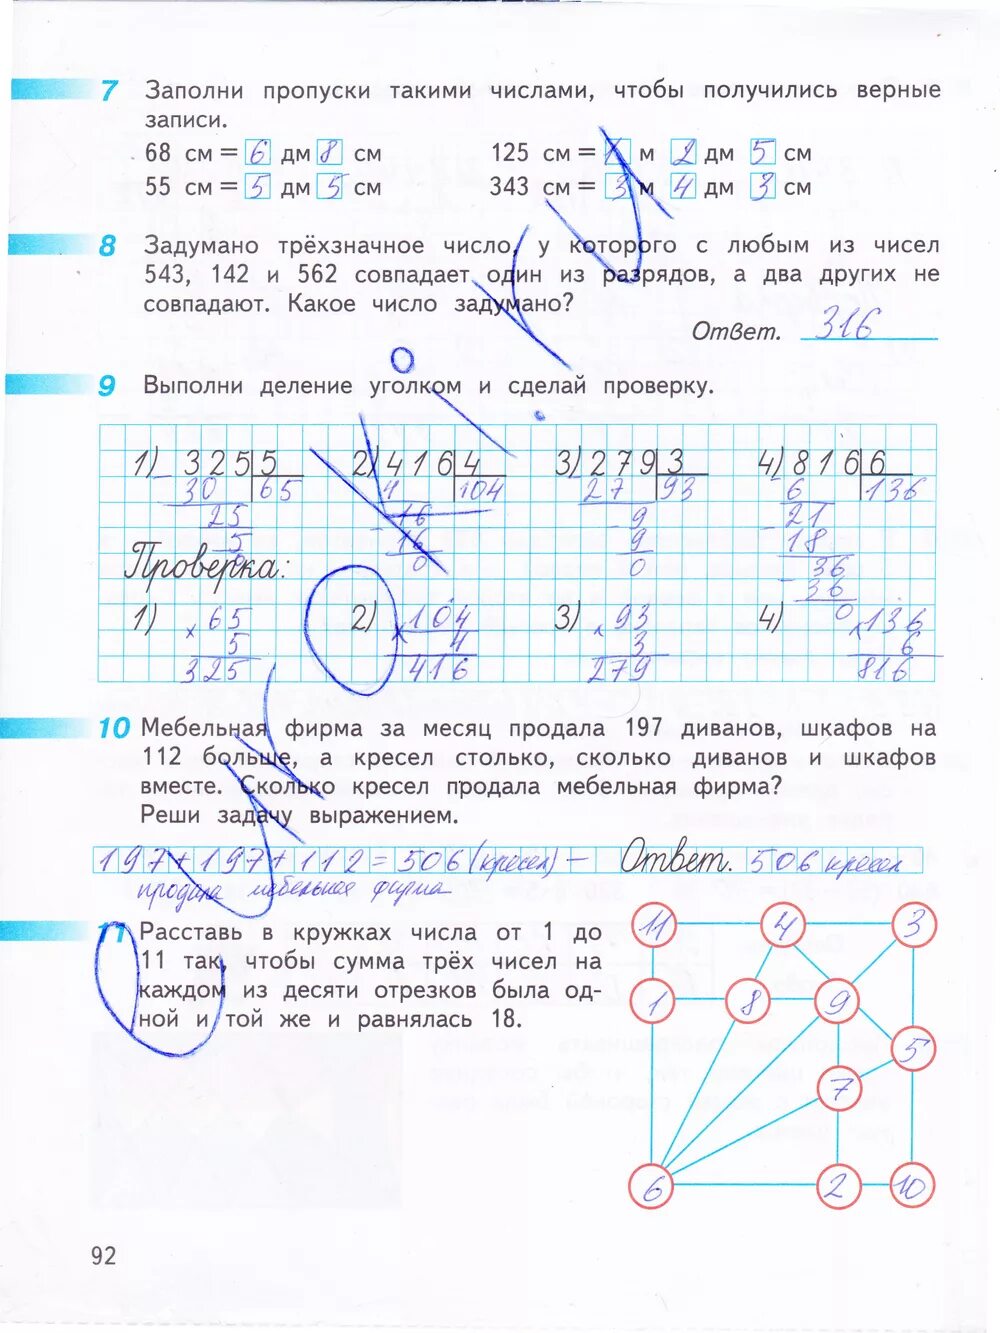 7 Заполни пропуски такими числами, чтобы получились верные
записи.
68 см = 6 дм 8 см 125 см = 1 м 2 дм 5 см
55 см = 5 дм 5 см 343 см = 3 м 4 дм 3 см
8 Задумано трёхзначное число, у которого с любым из чисел
543, 142 и 562 совпадает один из разрядов, а два других не
совпадают. Какое число задумано?
Ответ. 316
9 Выполни деление уголком и сделай проверку.
1) 325 5 2) 416 4 3) 279 3 4) 816 6
30 65 4 104 27 93 6 136
25 16 9 21
5 16 9 18
0 0 0 36
36
0
Проверка:
1) × 65 2) × 104 3) × 93 4) × 136
5 4 3 6
325 416 279 816
10 Мебельная фирма за месяц продала 197 диванов, шкафов на
112 больше, а кресел столько, сколько диванов и шкафов
вместе. Сколько кресел продала мебельная фирма?
Реши задачу выражением.
197 + 197 + 112 = 506 (кресел) – Ответ. 506 кресел
продала мебельная фирма
11 Расставь в кружках числа от 1 до
11 так, чтобы сумма трёх чисел на
каждом из десяти отрезков была од-
ной и той же и равнялась 18.
11 4 3
1 8 9
5
7
6 2 10
92